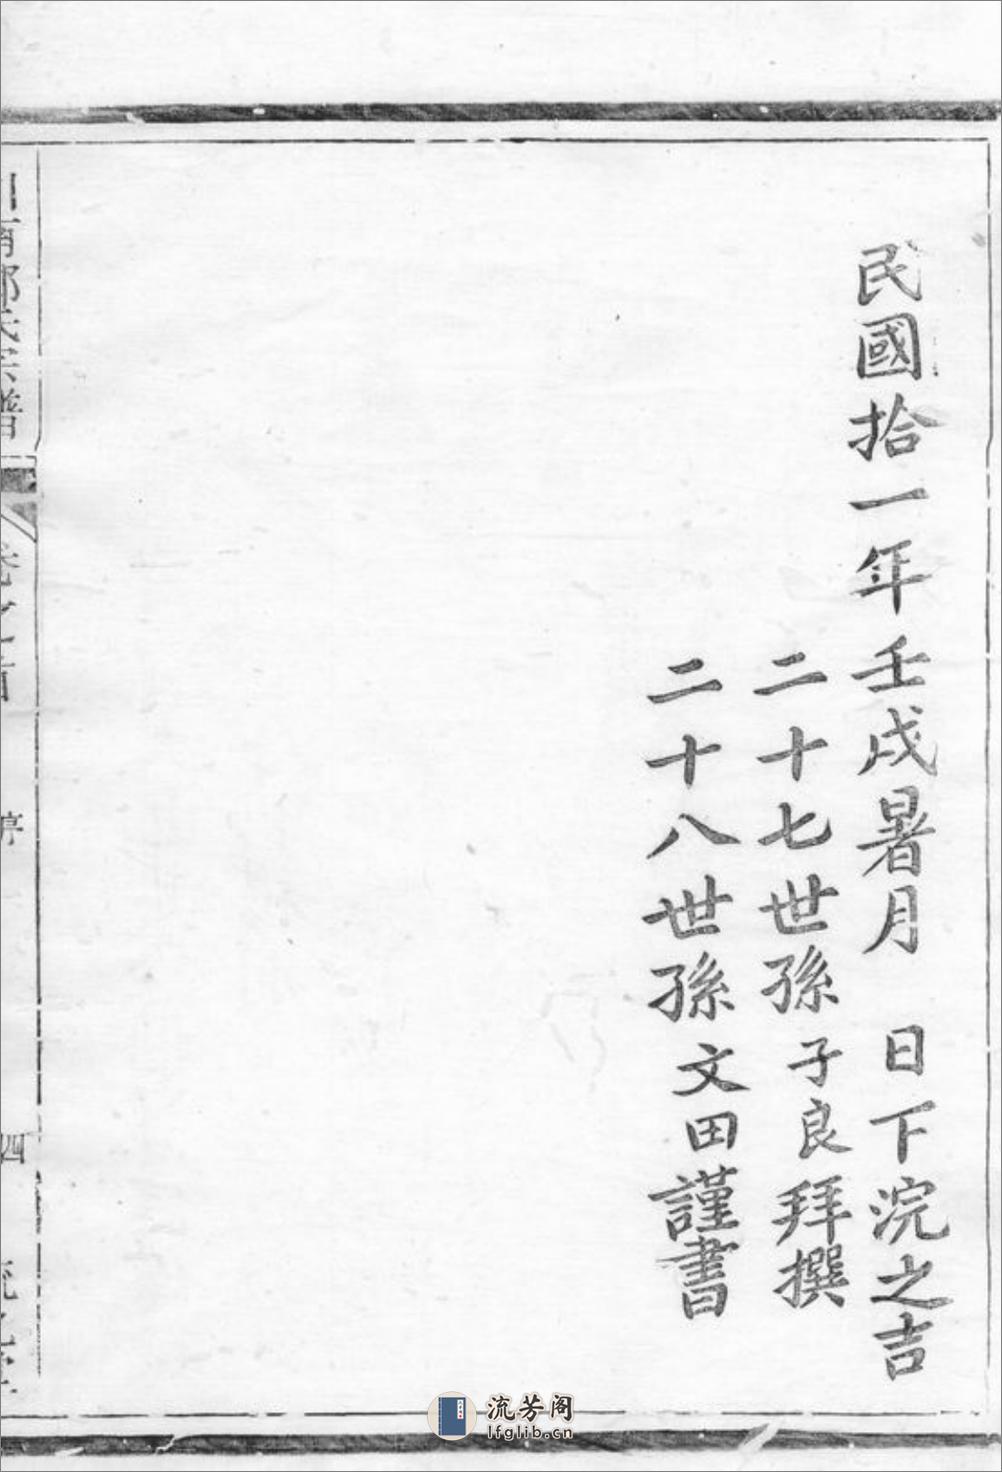 民國拾一年壬戌暑月 日下浣之吉
二十七世孫子良拜撰
二十八世孫文田謹書
氏宗譜
卷之首
四
流芳阁
lfglib.cn